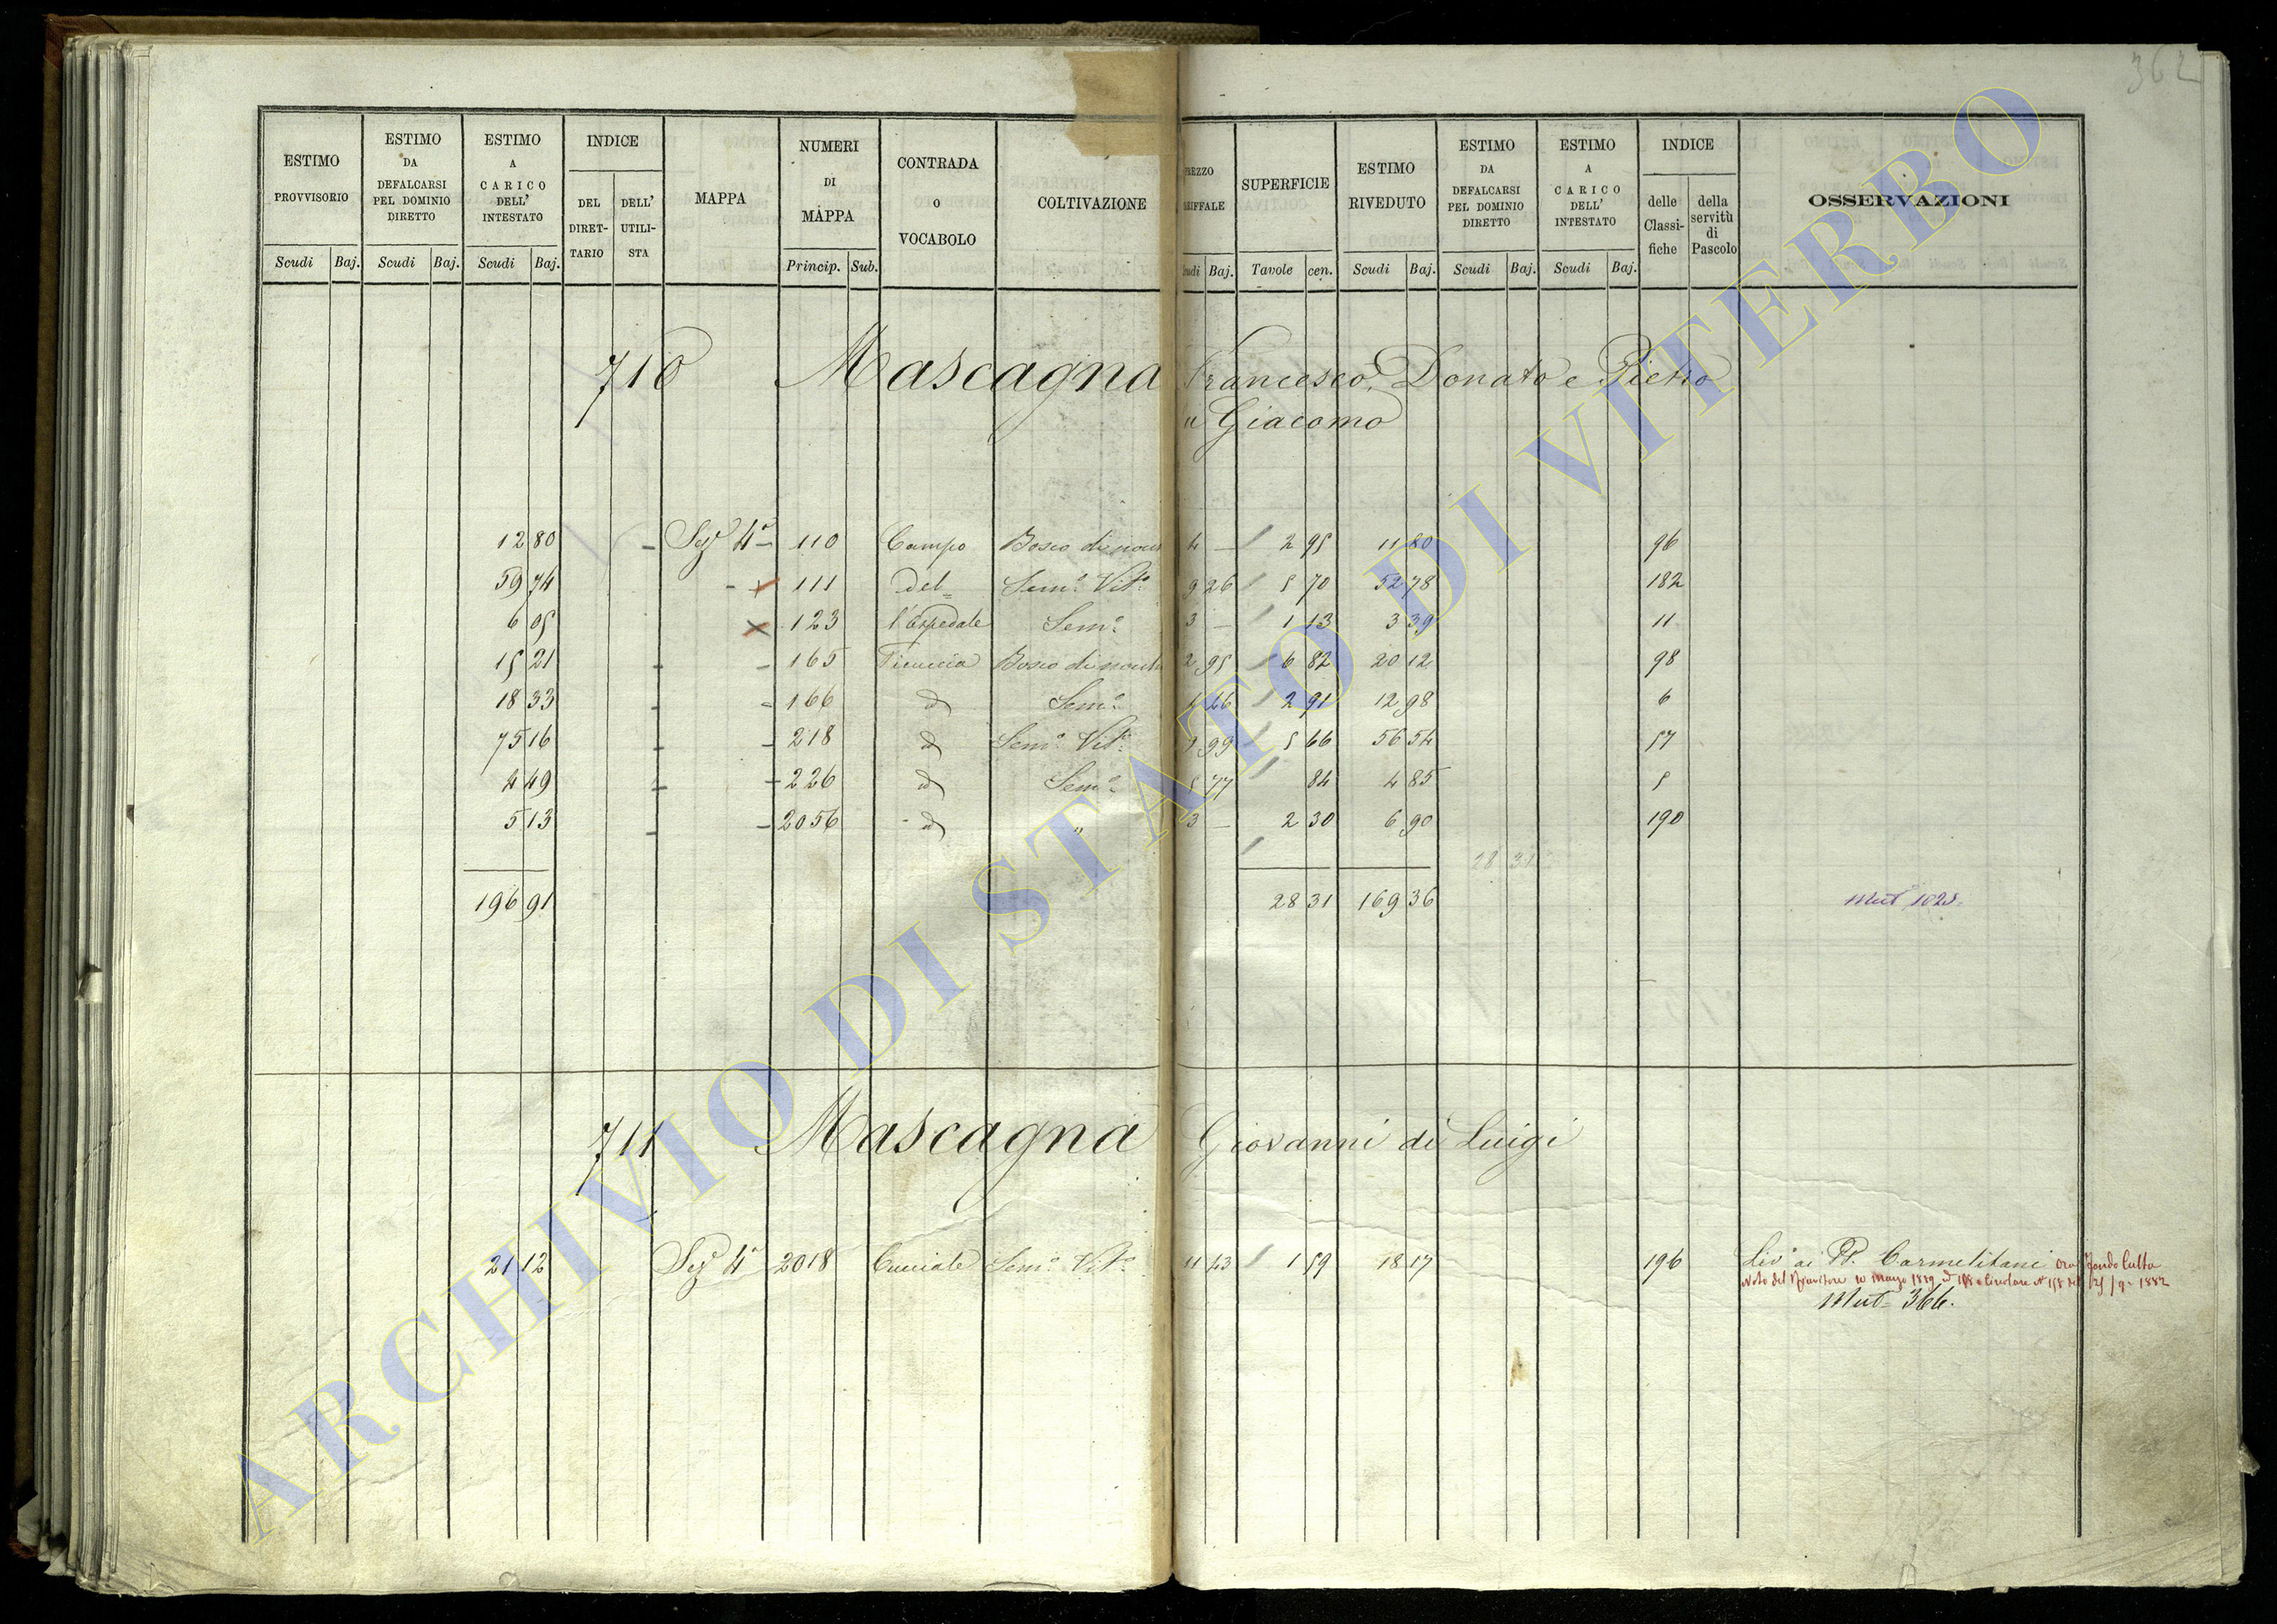 362
ESTIMO PROVVISORIO
ESTIMO DA DEFALCARSI PEL DOMINIO DIRETTO
ESTIMO A CARICO DELL' INTESTATO
INDICE
DEL DIRETTARIO
DELL' UTILISTA
MAPPA
NUMERI DI MAPPA
CONTRADA O VOCABOLO
COLTIVAZIONE
SUPERFICIE
ESTIMO RIVEDUTO
ESTIMO DA DEFALCARSI PEL DOMINIO DIRETTO
ESTIMO A CARICO DELL' INTESTATO
INDICE
delle Classifiche
della servitù di Pascolo
OSSERVAZIONI
Scudi Baj. Scudi Baj. Scudi Baj. Princip. Sub. Baj. Tavole cen. Scudi Baj. Scudi Baj. Scudi Baj.
710 Mascagna Francesco, Donato e Pietro
Giacomo
12 80 - Sez 4ª - 110 Campo Bosco da 4 - 2 95 11 80 96
59 74 - x 111 del= Semº Vitº 9 26 5 70 52 78 182
6 05 x 123 l'Ospedale Semº 3 - 1 13 3 39 11
15 21 - - 165 Bosco da 2 95 6 82 20 12 98
18 33 - - 166 d Semº 4 46 2 91 12 98 6
75 16 - - 218 d Semº Vitº 9 99 5 66 56 54 57
4 49 - - 226 d Semº 5 77 84 4 85 5
5 13 - - 2056 d " 3 - 2 30 6 90 190
28 31
196 91 28 31 169 36 Mutª 1025
711 Mascagna Giovanni di Luigi
21 12 Sez 4ª 2018 Cucciale Semº Vitº 11 43 1 59 18 17 196 Livº ai PP. Carmelitani ora Fondo Culto
Mutª 366.
ARCHIVIO DI STATO DI VITERBO